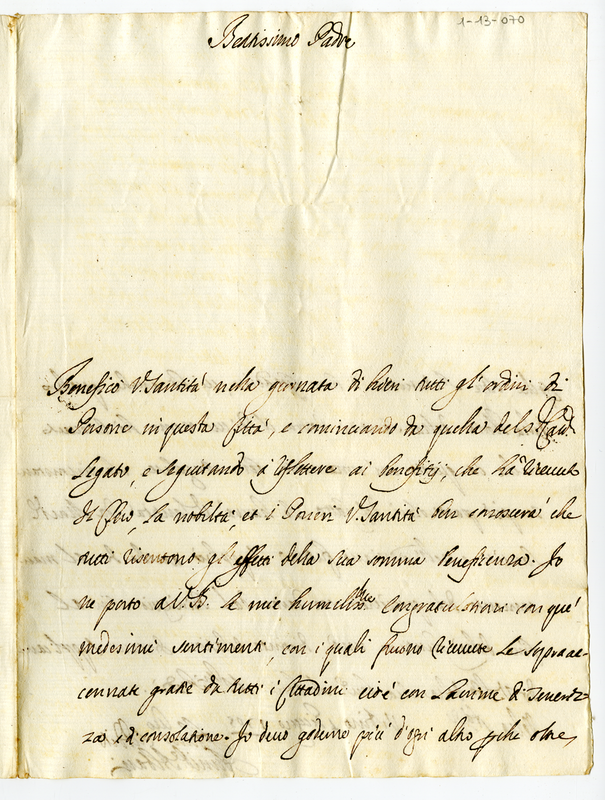 1-13-070
Beatissimo Padre
Beneficò V. Santità nella giornata di hieri tutti gl'ordini di
Persone in questa Città, e cominciando da quella del Sr Card.
Legato, e seguitando à riflettere ai beneficij, che hà ricevuti
il Clero, la nobiltà, et i Poveri V. Santità ben conoscerà che
tutti risentono gl'effetti della sua somma beneficenza. Io
ne porto a V. B. le mie humilissime congratulationi con què
medesimi sentimenti, con i quali furono ricevute le sopraac-
cennate gratie da tutti i Cittadini cioè con lacrime di tenerez-
za, e di consolatione. Io devo goderne più d'ogni altro perche oltre